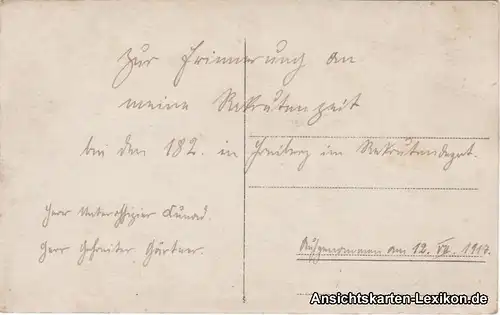 Zur Erinnerung an
meine Rekrutenzeit
bei den 182. in Freiberg im Rekrutendepot.
Herr Unteroffizier Kunad.
Herr Gefreiter Gärtner.
Aufgenommen am 12. VII. 1917.
Ansichtskarten-Lexikon.de